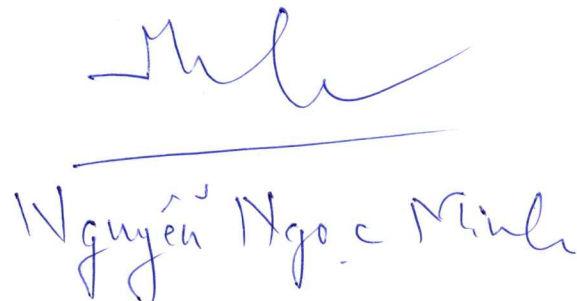 Nguyễn Ngọc Minh